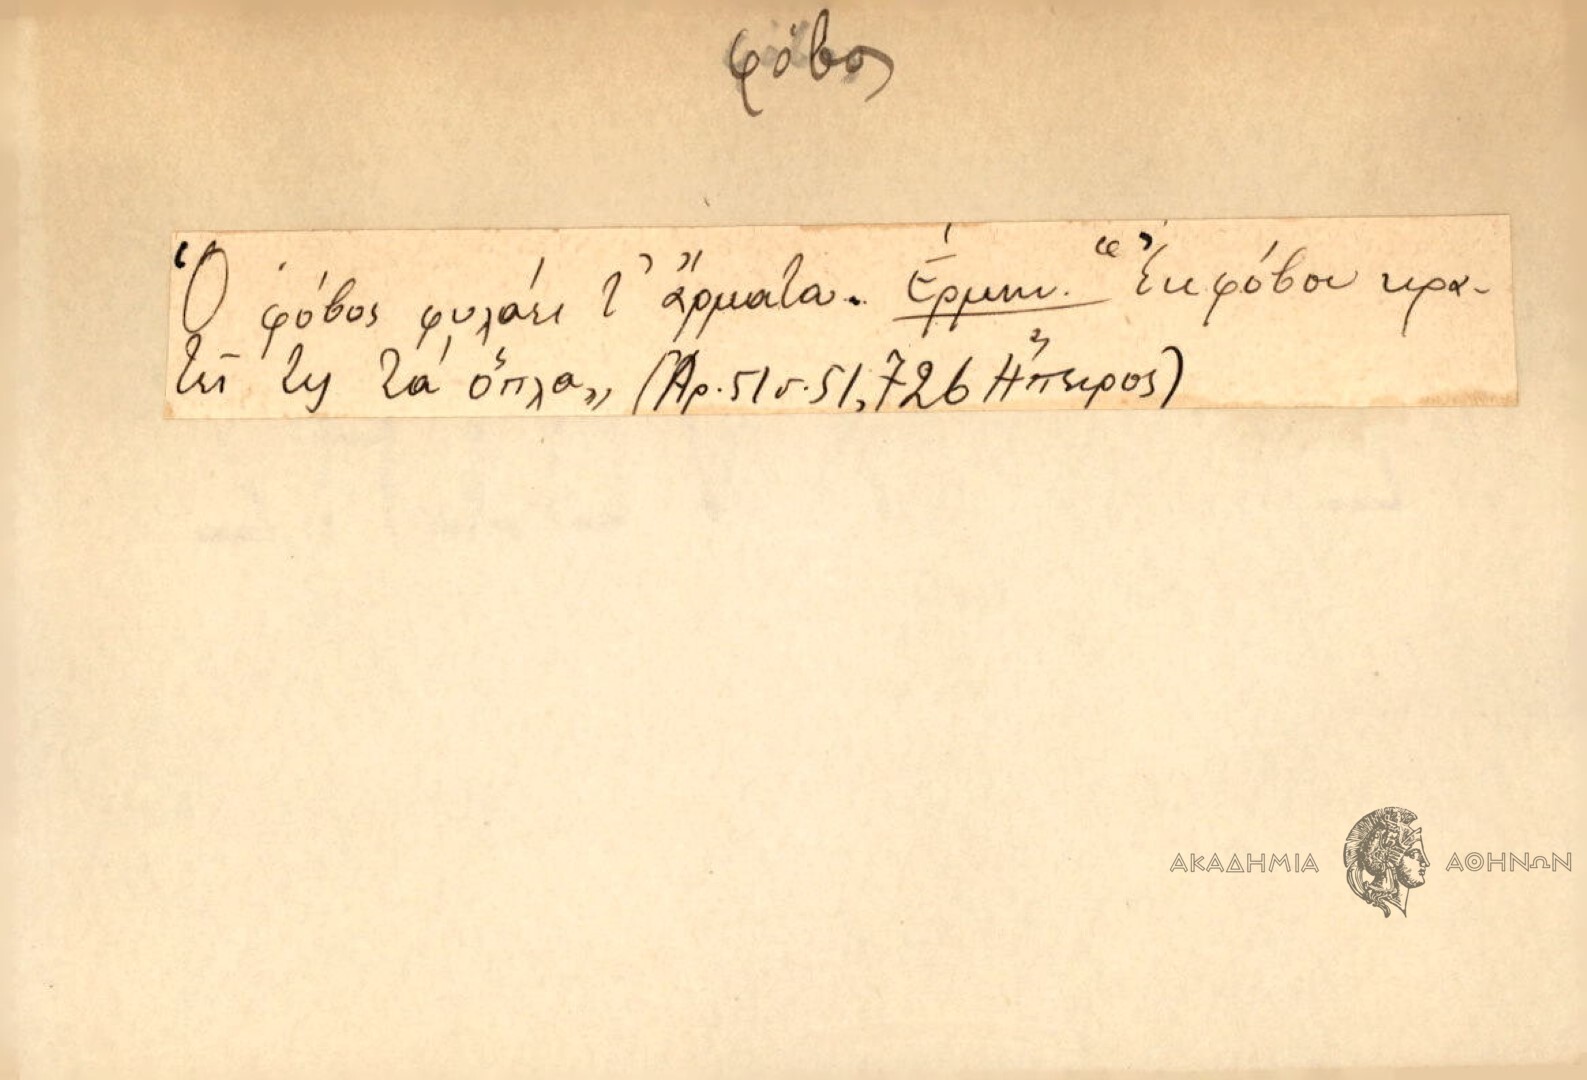 φόβος
Ὁ φόβος φυλάει τ' ἄρματα. Ἑρμην. "Ἐκ φόβου κρα-
τεῖ τις τά ὅπλα" (Ἀρ. 51 σ. 51, 726 Ἤπειρος)
ΑΚΑΔΗΜΙΑ ΑΘΗΝΩΝ